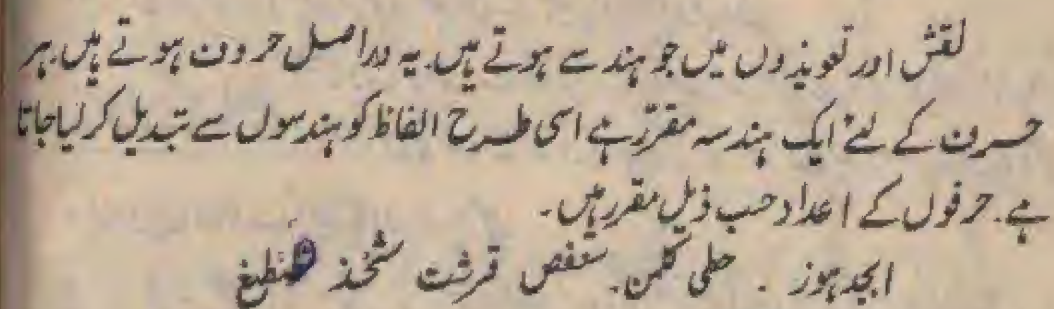 نقش اور تعویذوں میں جو ہندسے ہوتے ہیں۔ یہ دراصل حروف ہوتے ہیں۔ ہر
حرف کے لئے ایک ہندسہ مقرر ہے اسی طرح الفاظ کو ہندسوں سے تبدیل کر لیا جاتا
ہے۔ حرفوں کے اعداد حسب ذیل مقرر ہیں۔
ابجد ہوز . حطی کلمن۔ سعفص قرشت ثخذ ضظغ